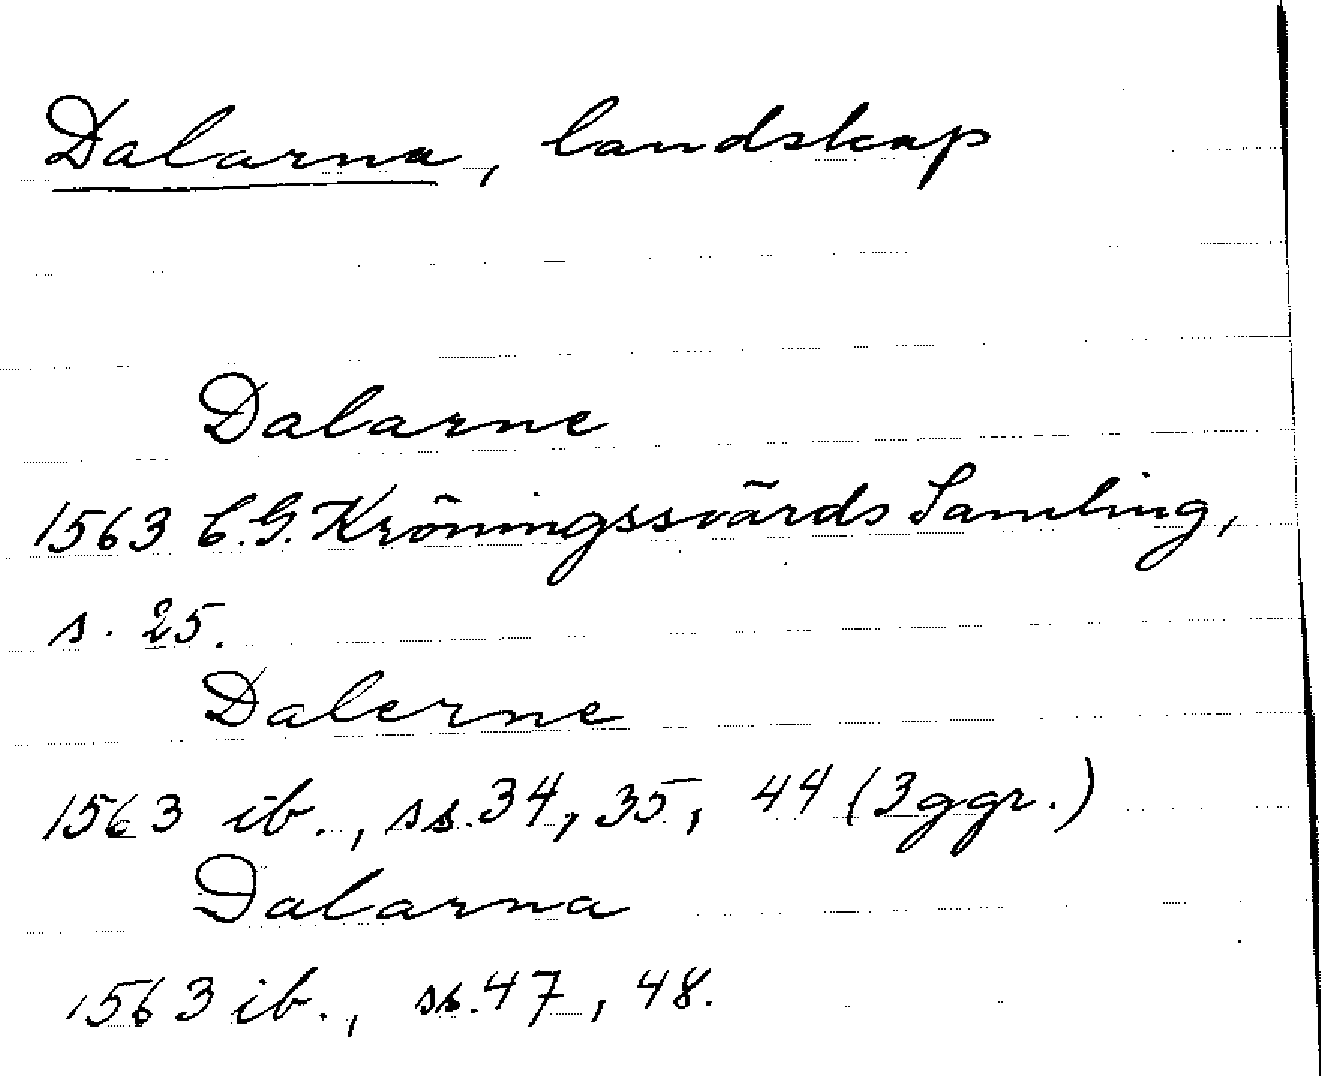 Dalarna, landskap
Dalarne
1563 C.G. Kröningssvärds Samling,
s. 25.
Dalerne
1563 ib., ss. 34, 35, 44 (3 ggr.)
Dalarna
1563 ib., ss. 47, 48.